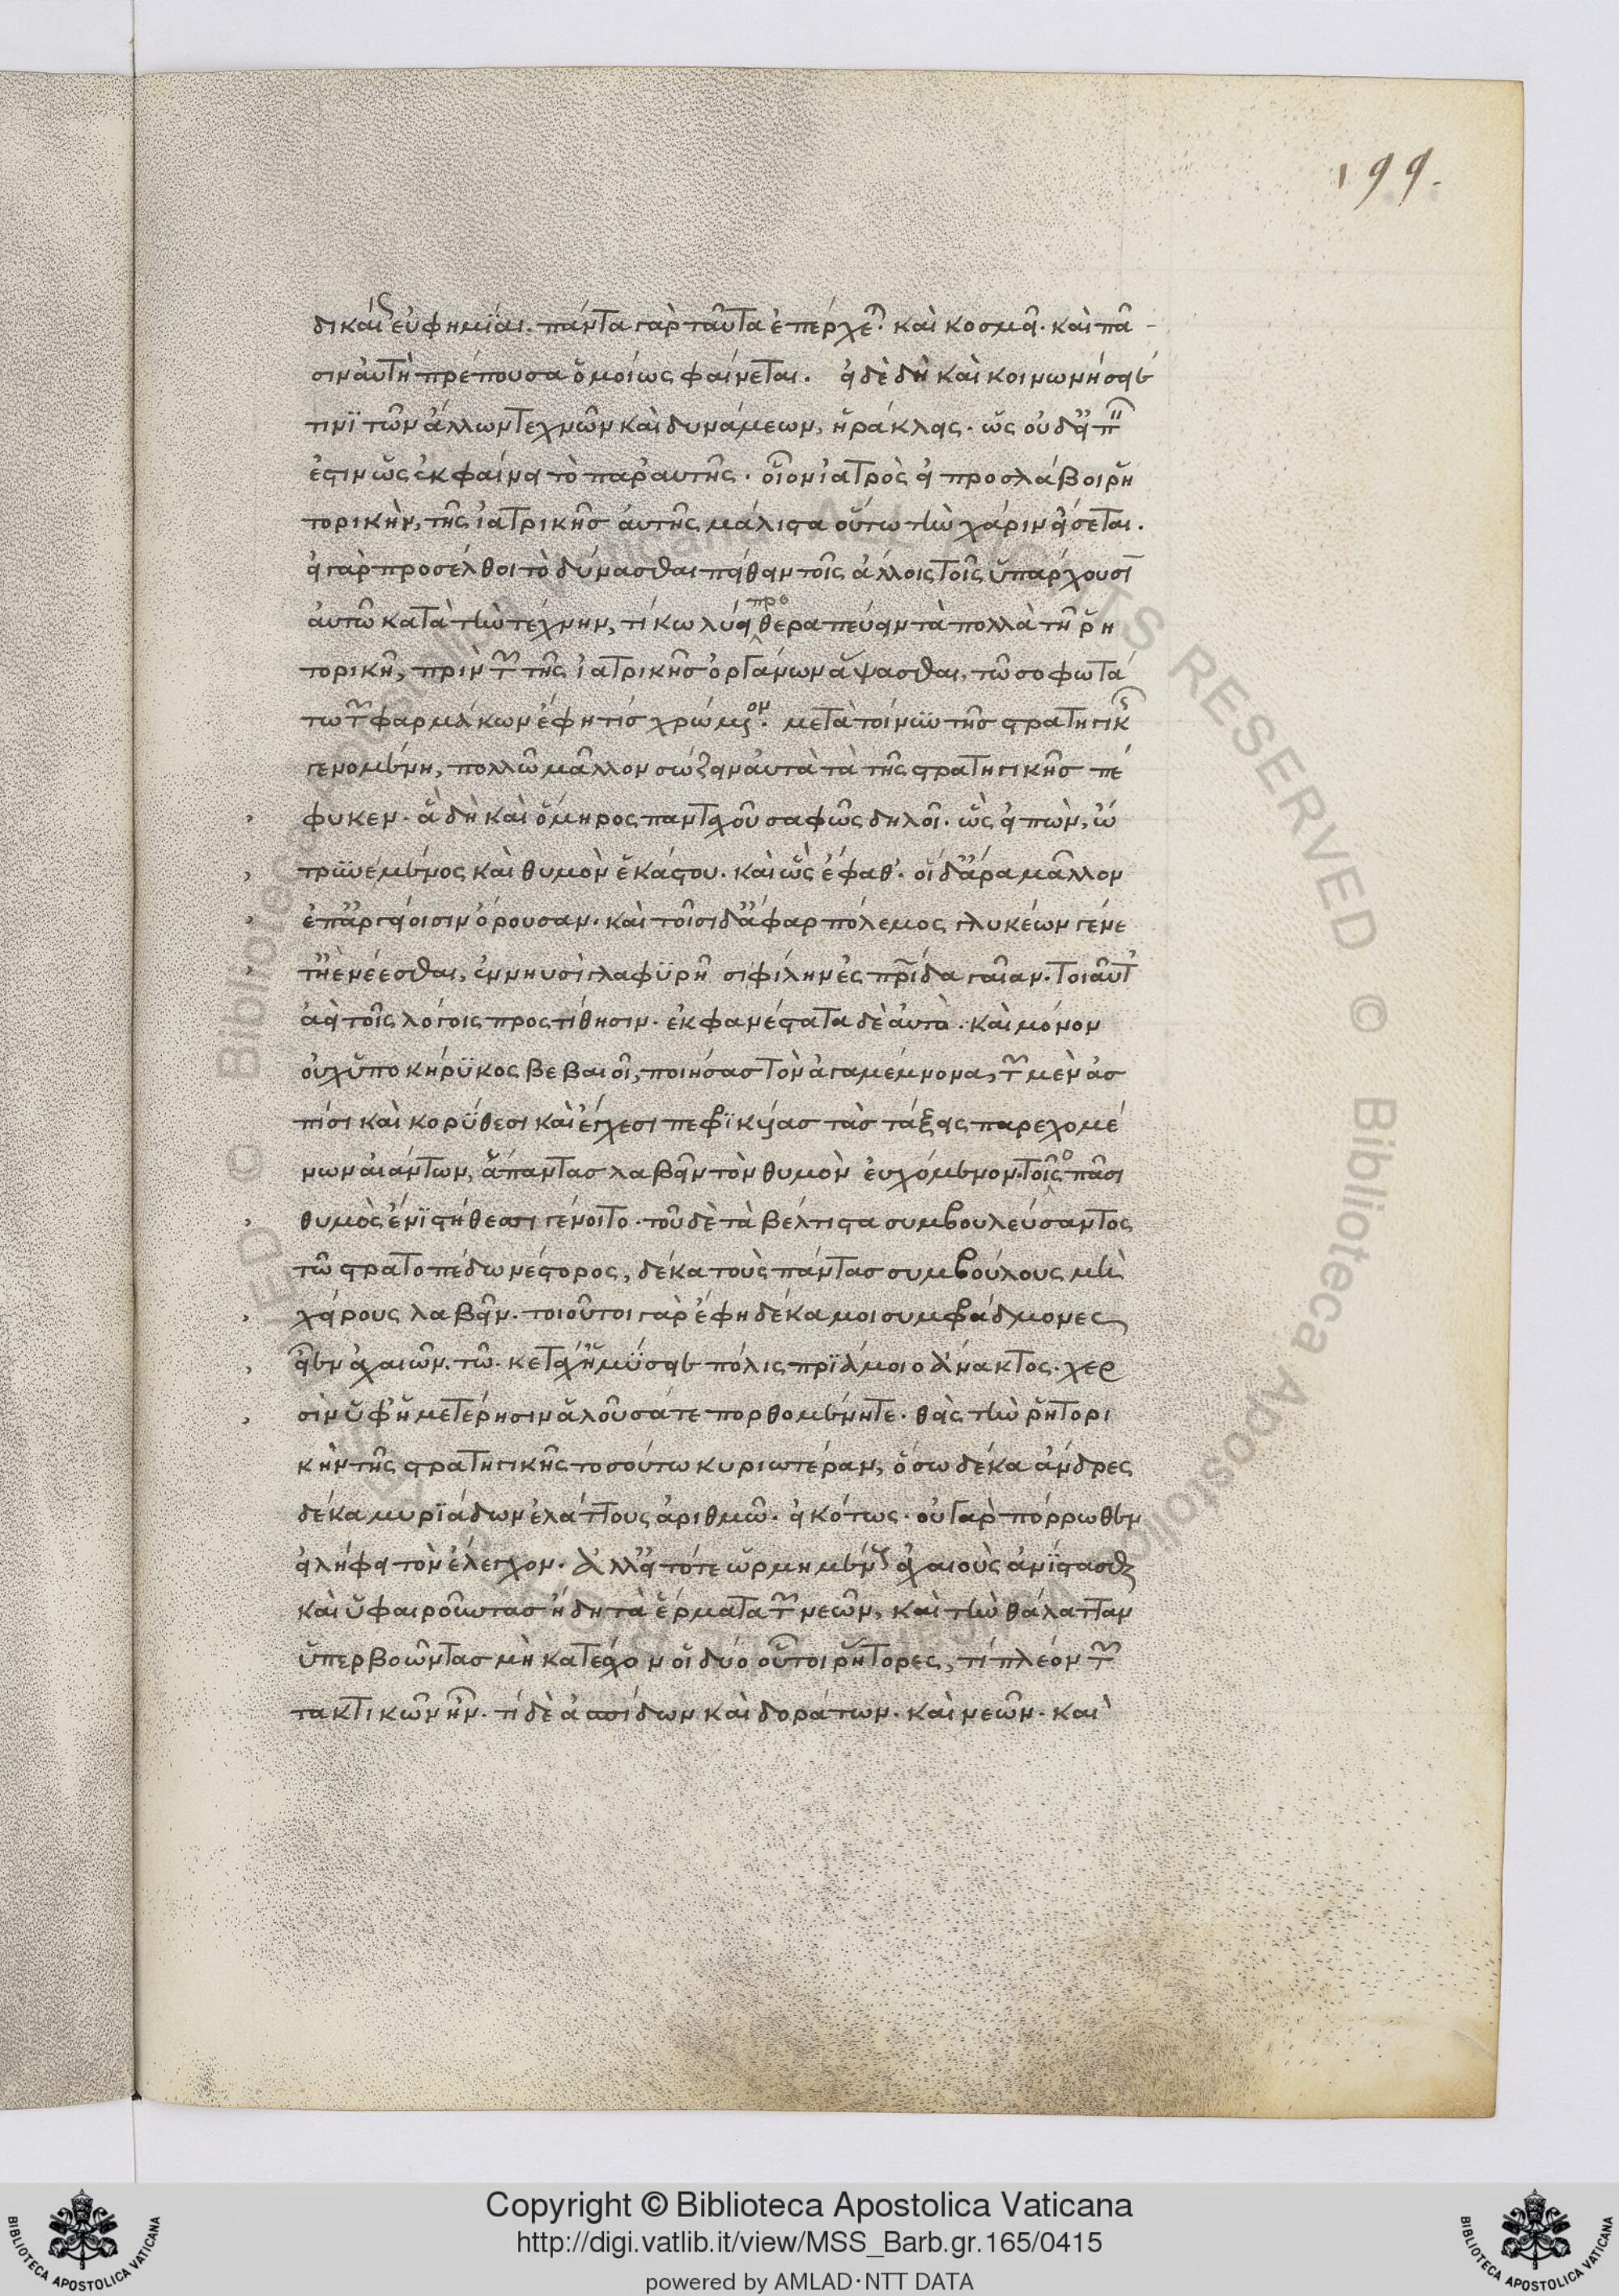 199.
δικαίας εὐφημΐαι. πάντα γὰρ ταῦτα ἐπέρχεται. καὶ κοσμεῖ. καὶ πᾶ-
σιν αὐτὴ πρέπουσα ὁμοίως φαίνεται. εἰ δὲ δὴ καὶ κοινωνήσειεν
τινῒ τῶν ἄλλων τεχνῶν καὶ δυνάμεων, ἡράκλεις. ὡς οὐδ
ἔστιν ὡς ἐκφαίνει τὸ παρ' αὐτῆς. οἷον ἰατρὸς εἰ προσλάβοι ῥη
τορικὴν, τῆς ἰατρικῆς αὐτῆς μάλιστα οὕτω τὴν χάριν εἴσεται.
εἰ γὰρ προσέλθοι τὸ δύνασθαι πείθειν τοῖς ἄλλοις τοῖς ὑπάρχουσιν
αὐτῶ κατὰ τὴν τέχνην, τί κωλύει προθεραπεύειν τὰ πολλὰ τῆ ῥη
τορικῆ, πρὶν τῶν τῆς ἰατρικῆς ὀργάνων ἅψασθαι, τῶ σοφωτά
τω τῶν φαρμάκων ἔφη τίς χρώμενον. μετὰ τοίνυν τῆς στρατηγικῆς
γενομένη, πολλῶ μᾶλλον σώζειν αὐτὰ τὰ τῆς στρατηγικῆς πέ
φυκεν. ἃ δὴ καὶ ὅμηρος πανταχοῦ σαφῶς δηλοῖ. ὡς εἰπὼν, ὤ
τρϋνε μένος καὶ θυμὸν ἑκάστου. καὶ ὣς ἔφαθ'. οἱ δ' ἄρα μᾶλλον
ἐπ' ἀργείοισιν ὄρουσαν. καὶ τοῖσι δ' ἄφαρ πόλεμος γλυκίων γένε
τ' ἠὲ νέεσθαι, ἐν νηυσὶ γλαφϋρῆσι φίλην ἐς πατρίδα γαῖαν. τοιαῦτ'
ἀεὶ τοῖς λόγοις προστίθησιν. ἐκφανέστατα δὲ αὐτὸ. καὶ μόνον
οὐχ ὑπο κήρϋκος βεβαιοῖ, ποιήσας τὸν ἀγαμέμνονα, τῶν μὲν ἀσ
πίσι καὶ κορύθεσι καὶ ἔγχεσι πεφρϊκυίας τὰς τάξεις παρεχομέ
νων αἰάντων, ἅπαντας λαβεῖν τὸν θυμὸν εὐχόμενον. τοῖος πᾶσι
θυμὸς ἐνῒ στήθεσσι γένοιτο. τοῦ δὲ τὰ βέλτιστα συμβουλεύσαντος
τῶ στρατοπέδω νέστορος, δέκα τοὺς πάντας συμβούλους μὴ
χείρους λαβεῖν. τοιοῦτοι γὰρ ἔφη δέκα μοι συμφράδμονες
εἶεν ἀχαιῶν. τῶ. κε τάχ' ἠμύσειεν πόλις πρϊάμοιο ἄνακτος. χερ
σὶν ὑφ' ἡμετέρησιν ἁλοῦσά τε πορθομένη τε. θεὶς τὴν ῥητορι
κὴν τῆς στρατηγικῆς τοσούτω κυριωτέραν, ὅσω δέκα ἄνδρες
δέκα μυρϊάδων ἐλάττους ἀριθμῶ. εἰκότως. οὐ γὰρ πόρρωθεν
εἰλήφει τὸν ἔλεγχον. ἀλλ' εἰ τότε ὡρμημένους ἀχαιοὺς ἀνΐστασθαι
καὶ ὑφαιροῦντας ἤδη τὰ ἕρματα τῶν νεῶν, καὶ τὴν θάλατταν
ὑπερβοῶντας μὴ κατεῖχον οἱ δύο οὗτοι ῥήτορες, τί πλέον τῶν
τακτικῶν ἦν. τί δὲ ἀσπίδων καὶ δοράτων. καὶ νεῶν. καὶ
Copyright © Biblioteca Apostolica Vaticana
http://digi.vatlib.it/view/MSS_Barb.gr.165/0415
powered by AMLAD·NTT DATA